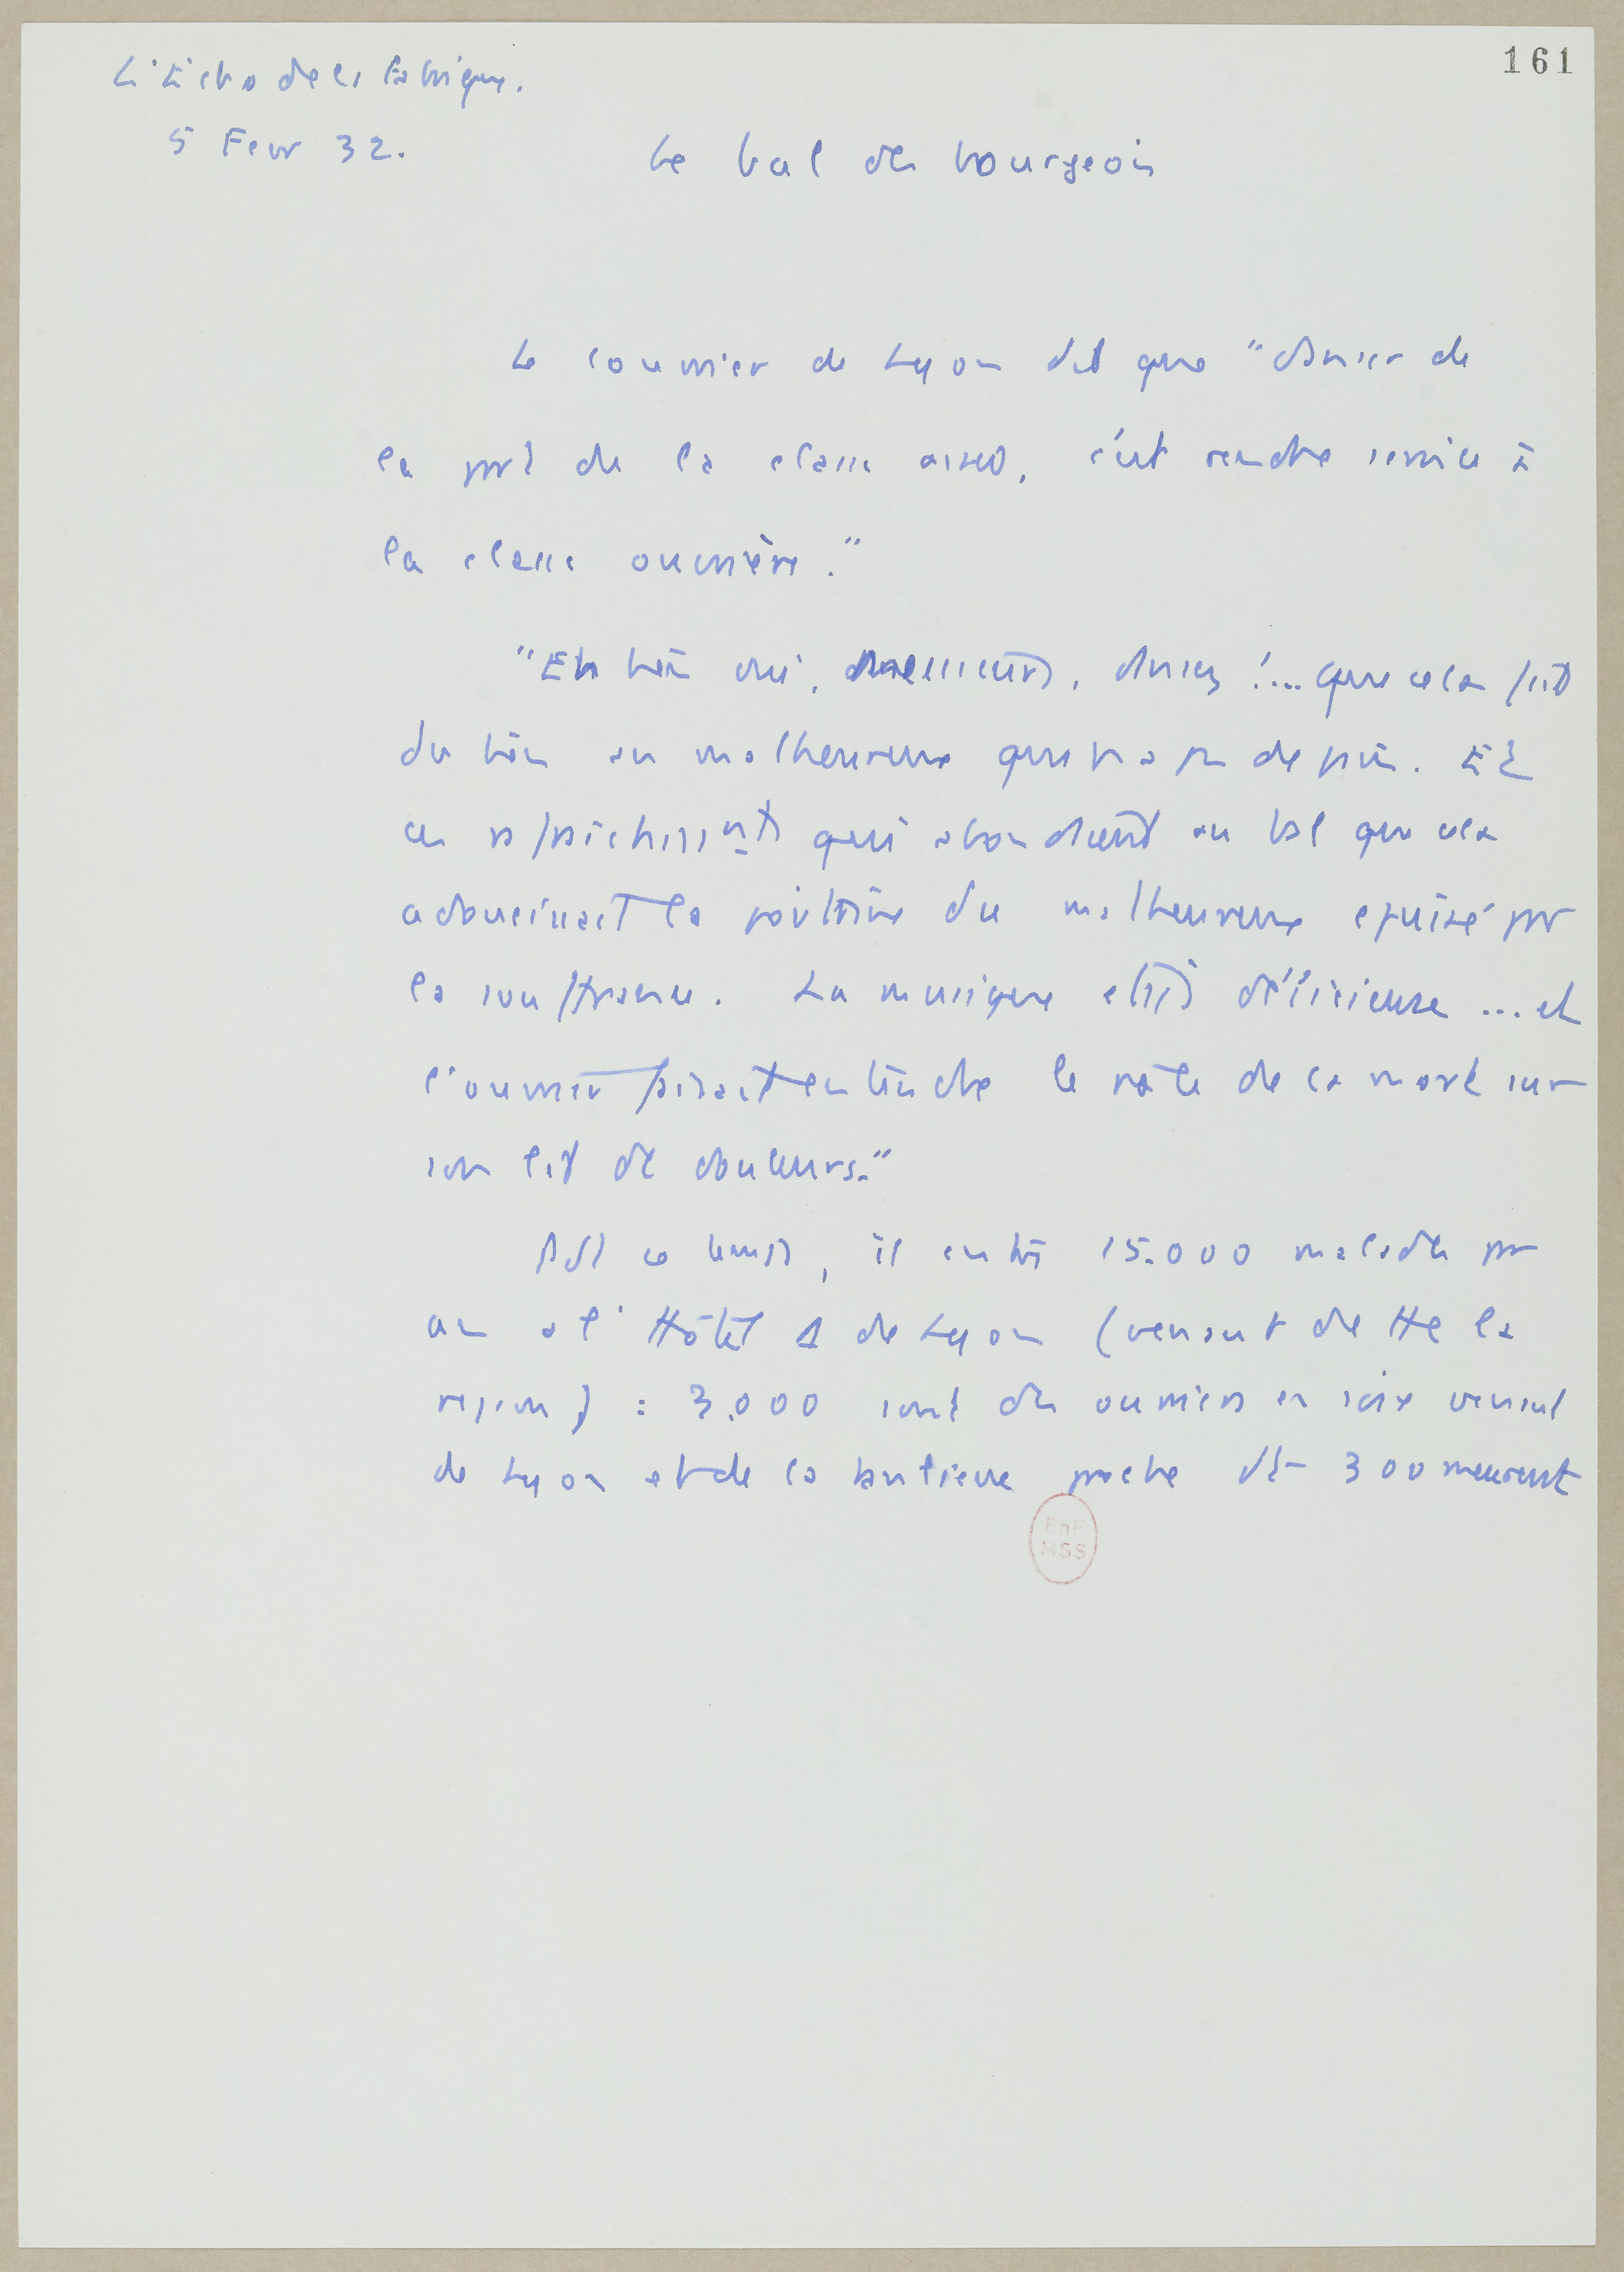 161
L'Echo de la Fabrique.
5 Fevr 32.
Le bal des bourgeois
Le courrier de Lyon dit que "danser de
la part de la classe aisée, c'est rendre service à
la classe ouvrière."
"Eh bien oui, messieurs, dansez !... que cela fait
du bien au malheureux qui n'a pas de pain. Et
ces rafraichissnts qui abondaient au bal que cela
adoucissait la poitrine du malheureux epuisé par
la souffrance. La musique était délicieuse ... et
l'ouvrier faisait entendre le râle de la mort sur
son lit de douleurs."
Pdt ce temps, il entre 15.000 malades par
an a l' Hôtel D de Lyon (venant de tte la
region) : 3.000 sont des ouvriers en soie venant
de Lyon et de la banlieue proche dt 300 meurent
BnF
MSS